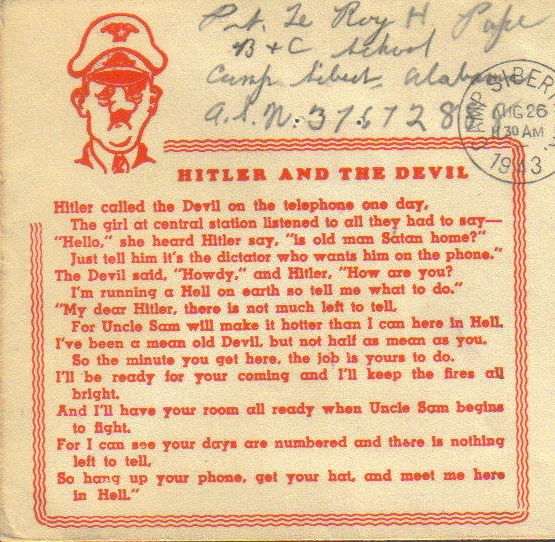 Pvt. Le Roy H. Pope
B + C School
Camp Sibert, Alabama
A.S.N. 3767728
CAMP SIBERT
AUG 26
11 30 AM
1943
HITLER AND THE DEVIL
Hitler called the Devil on the telephone one day,
The girl at central station listened to all they had to say—
"Hello," she heard Hitler say, "is old man Satan home?"
Just tell him it's the dictator who wants him on the phone."
The Devil said, "Howdy," and Hitler, "How are you?
I'm running a Hell on earth so tell me what to do."
"My dear Hitler, there is not much left to tell,
For Uncle Sam will make it hotter than I can here in Hell.
I've been a mean old Devil, but not half as mean as you.
So the minute you get here, the job is yours to do.
I'll be ready for your coming and I'll keep the fires all
bright.
And I'll have your room all ready when Uncle Sam begins
to fight.
For I can see your days are numbered and there is nothing
left to tell,
So hang up your phone, get your hat, and meet me here
in Hell."